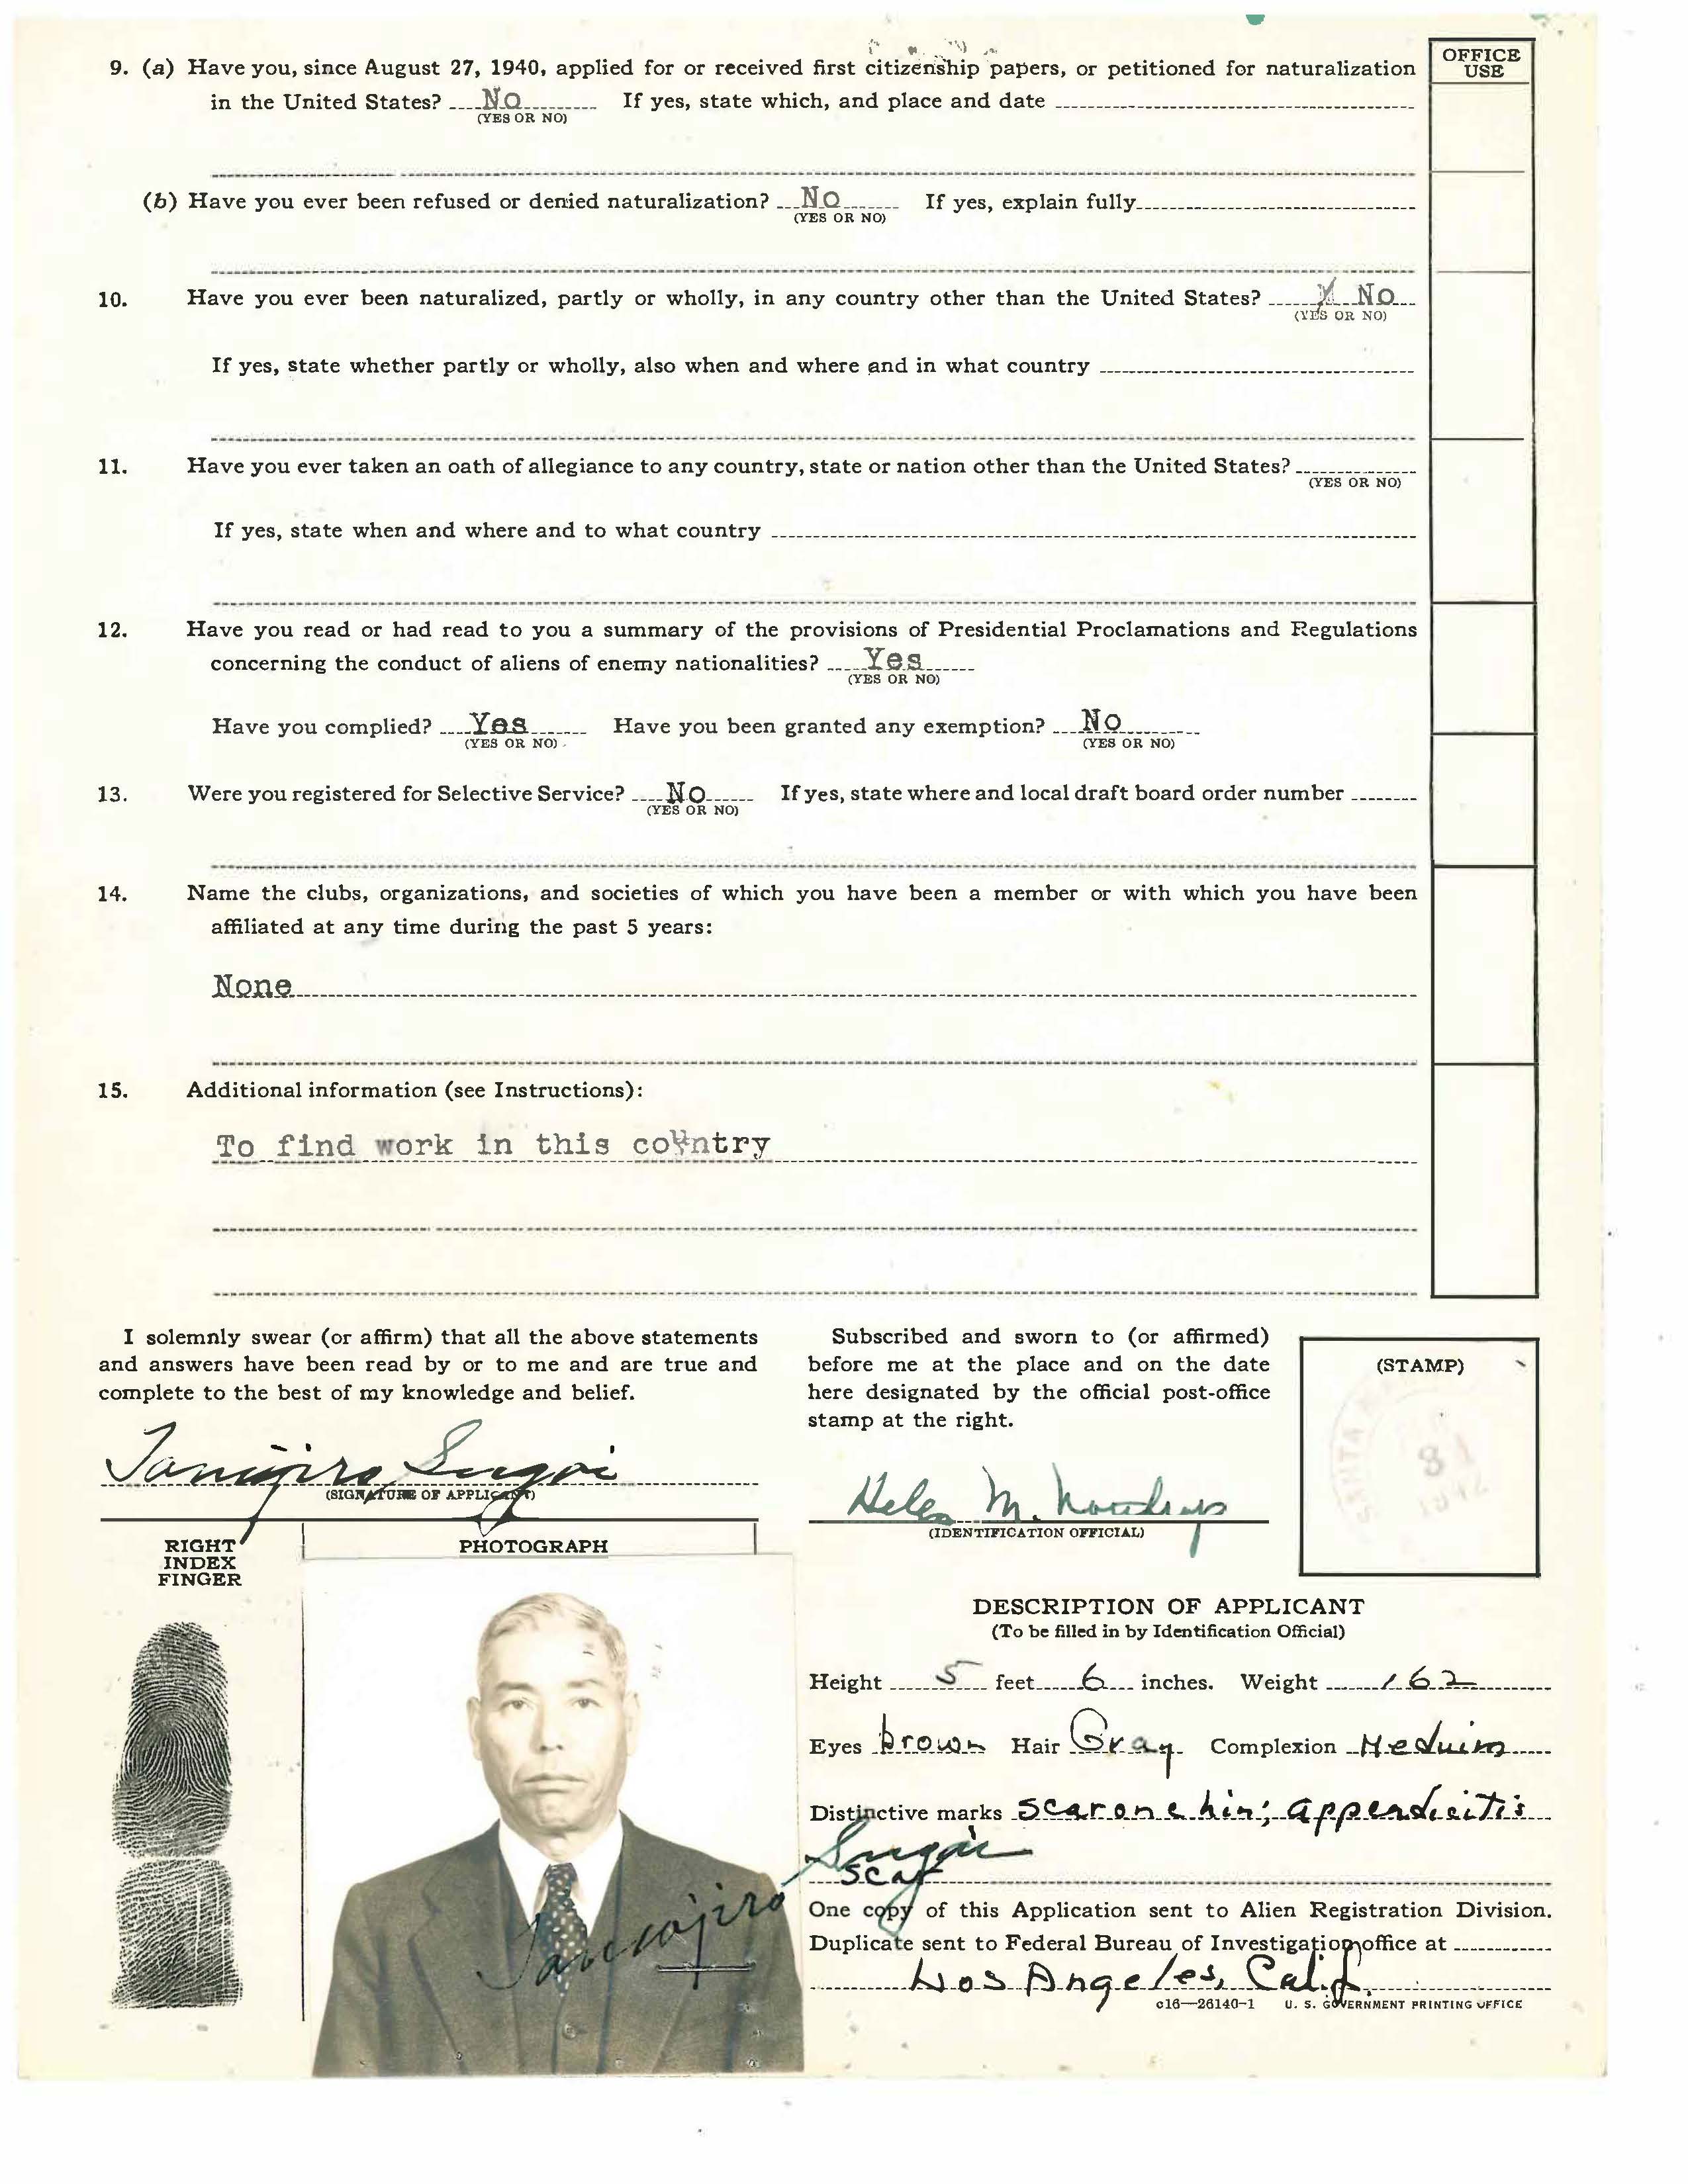 OFFICE
USE
9. (a) Have you, since August 27, 1940, applied for or received first citizenship papers, or petitioned for naturalization
in the United States? No If yes, state which, and place and date
(YES OR NO)
(b) Have you ever been refused or denied naturalization? No If yes, explain fully
(YES OR NO)
10. Have you ever been naturalized, partly or wholly, in any country other than the United States? No
(YES OR NO)
If yes, state whether partly or wholly, also when and where and in what country
11. Have you ever taken an oath of allegiance to any country, state or nation other than the United States?
(YES OR NO)
If yes, state when and where and to what country
12. Have you read or had read to you a summary of the provisions of Presidential Proclamations and Regulations
concerning the conduct of aliens of enemy nationalities? Yes
(YES OR NO)
Have you complied? Yes Have you been granted any exemption? No
(YES OR NO) (YES OR NO)
13. Were you registered for Selective Service? No If yes, state where and local draft board order number
(YES OR NO)
14. Name the clubs, organizations, and societies of which you have been a member or with which you have been
affiliated at any time during the past 5 years:
None
15. Additional information (see Instructions):
To find work in this country
I solemnly swear (or affirm) that all the above statements
and answers have been read by or to me and are true and
complete to the best of my knowledge and belief.
Sugoi
(SIGNATURE OF APPLICANT)
Subscribed and sworn to (or affirmed)
before me at the place and on the date
here designated by the official post-office
stamp at the right.
Helen M.
(IDENTIFICATION OFFICIAL)
(STAMP)
SANTA
31
1942
RIGHT
INDEX
FINGER
PHOTOGRAPH
DESCRIPTION OF APPLICANT
(To be filled in by Identification Official)
Height 5 feet 6 inches. Weight 162
Eyes brown Hair Gray Complexion Meduim
Distinctive marks scar on chin; appendicitis
Sugoi
scar
One copy of this Application sent to Alien Registration Division.
Duplicate sent to Federal Bureau of Investigation office at
Los Angeles, Calif.
c16—26140-1 U. S. GOVERNMENT PRINTING OFFICE